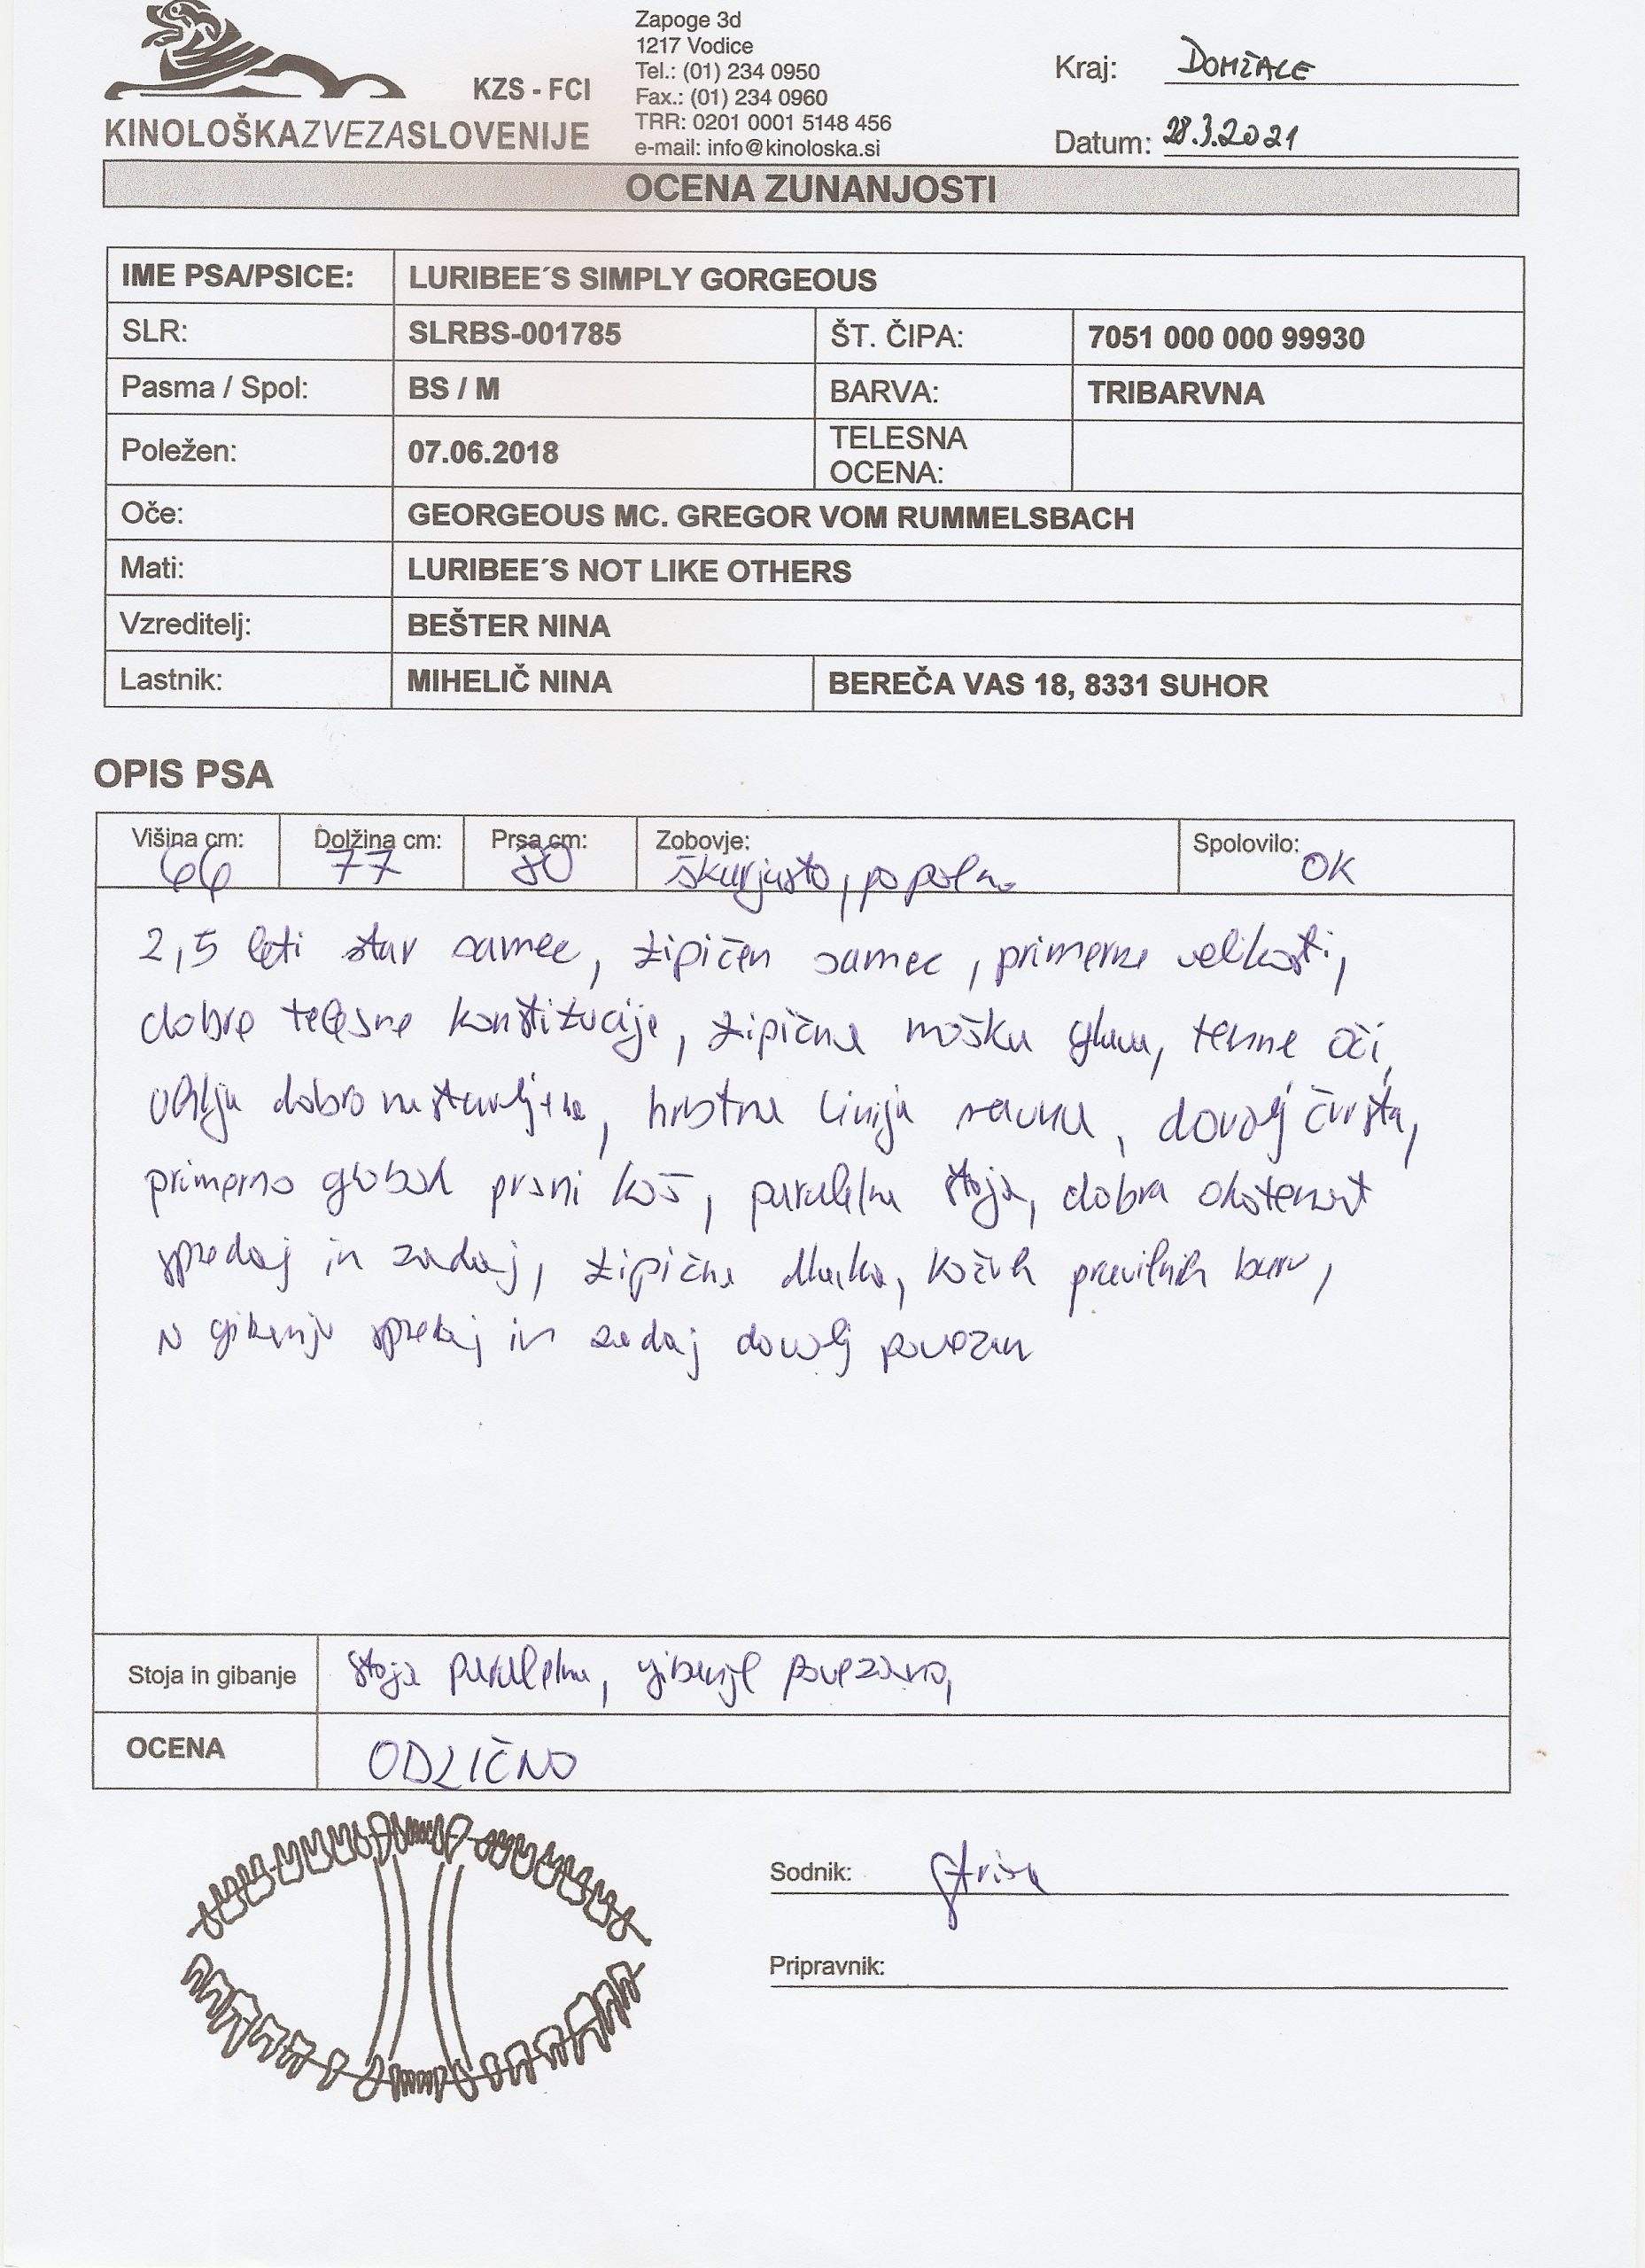 Zapoge 3d
1217 Vodice
Tel.: (01) 234 0950
Fax.: (01) 234 0960
TRR: 0201 0001 5148 456
e-mail: info@kinoloska.si
KZS - FCI
KINOLOŠKAZVEZASLOVENIJE
Kraj: DOMŽALE
Datum: 28.3.2021
OCENA ZUNANJOSTI
IME PSA/PSICE: LURIBEE´S SIMPLY GORGEOUS
SLR: SLRBS-001785 ŠT. ČIPA: 7051 000 000 99930
Pasma / Spol: BS / M BARVA: TRIBARVNA
Poležen: 07.06.2018 TELESNA
OCENA:
Oče: GEORGEOUS MC. GREGOR VOM RUMMELSBACH
Mati: LURIBEE´S NOT LIKE OTHERS
Vzreditelj: BEŠTER NINA
Lastnik: MIHELIČ NINA BEREČA VAS 18, 8331 SUHOR
OPIS PSA
Višina cm: Dolžina cm: Prsa cm: Zobovje: Spolovilo:
66 77 80 škarjasto, popolno OK
2,5 leti star samec, tipičen samec, primerne velikosti,
dobre telesne konstitucije, tipična moška glava, temne oči,
uhlja dobro nastavljena, hrbtna linija ravna, dovolj čvrsta,
primerno globok prsni koš, paralelna stoja, dobra okotenost
spredaj in zadaj, tipična dlaka, kožuh pravilnih barv,
v gibanju spredaj in zadaj dovolj povezan
Stoja in gibanje stoja paralelna, gibanje povezano,
OCENA ODLIČNO
Sodnik:
Pripravnik: